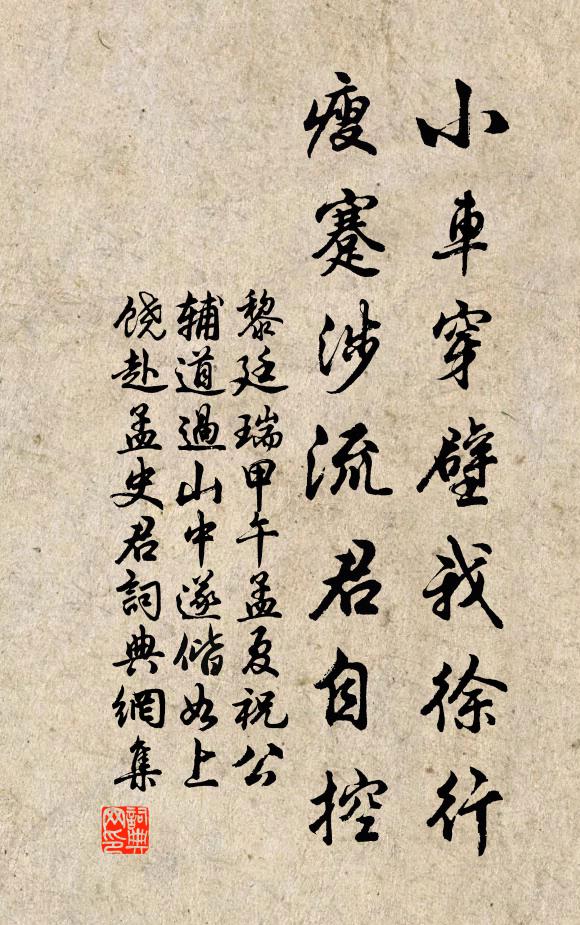 小車穿壁我徐行
瘦蹇涉流君自控
黎廷瑞甲午孟夏祝公
輔道過山中遂偕如上
饒赴孟史君詞典網集
詞典網印